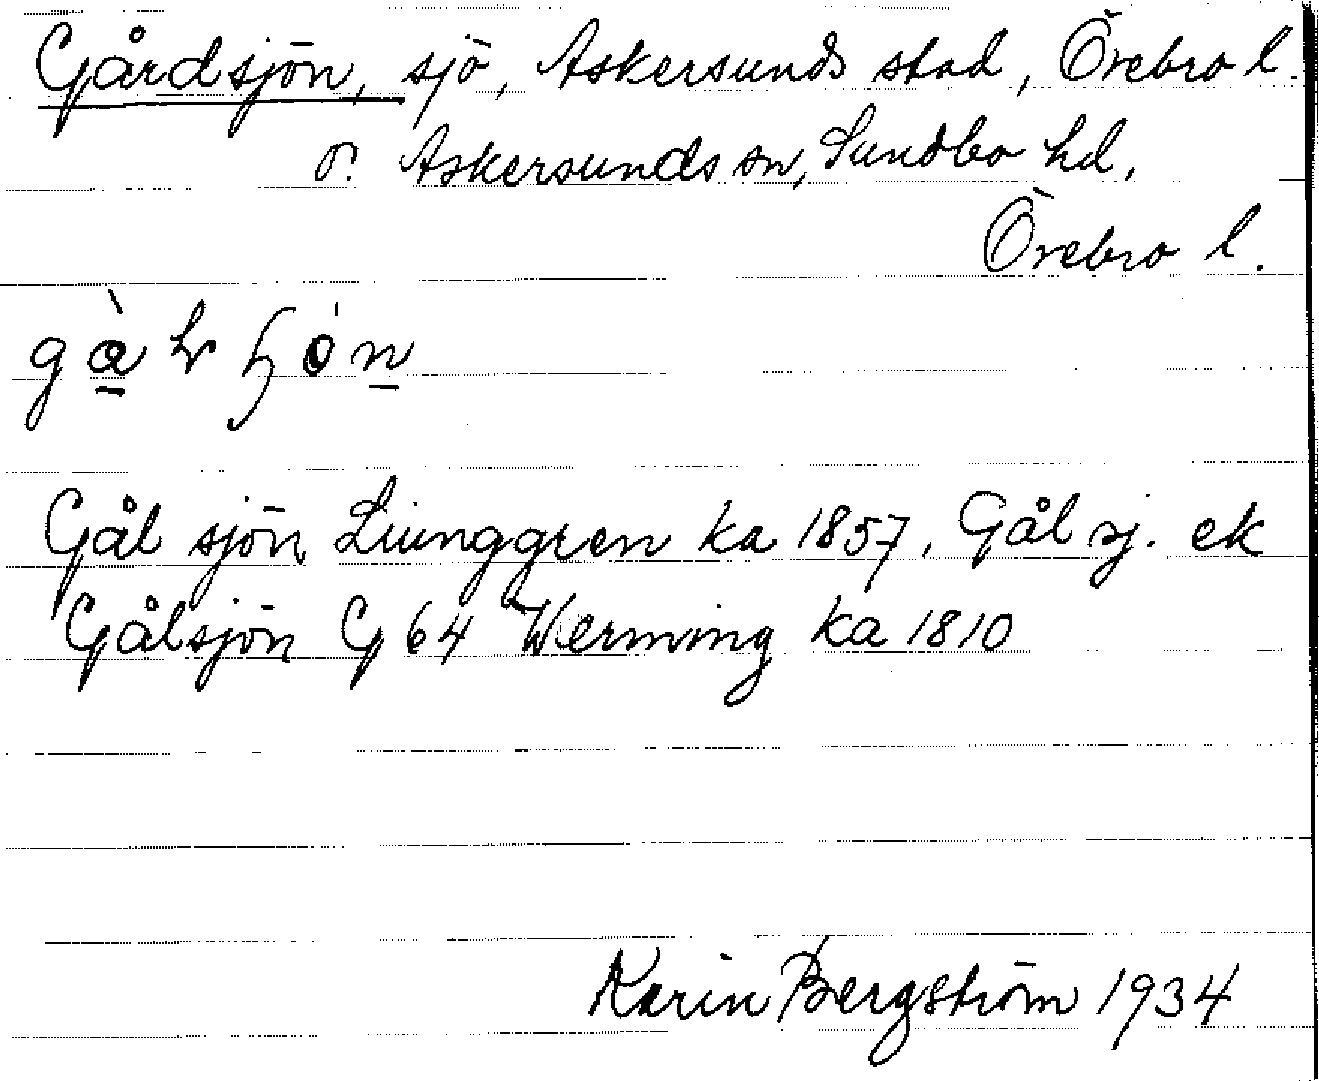 Gårdsjön, sjö, Askersunds stad, Örebro l.
o. Askersunds sn, Sundbo hd,
Örebro l.
Gål sjön Liunggren ka 1857, Gål sj. ek
Gålsjön G 64 Werming ka 1810
Karin Bergström 1934